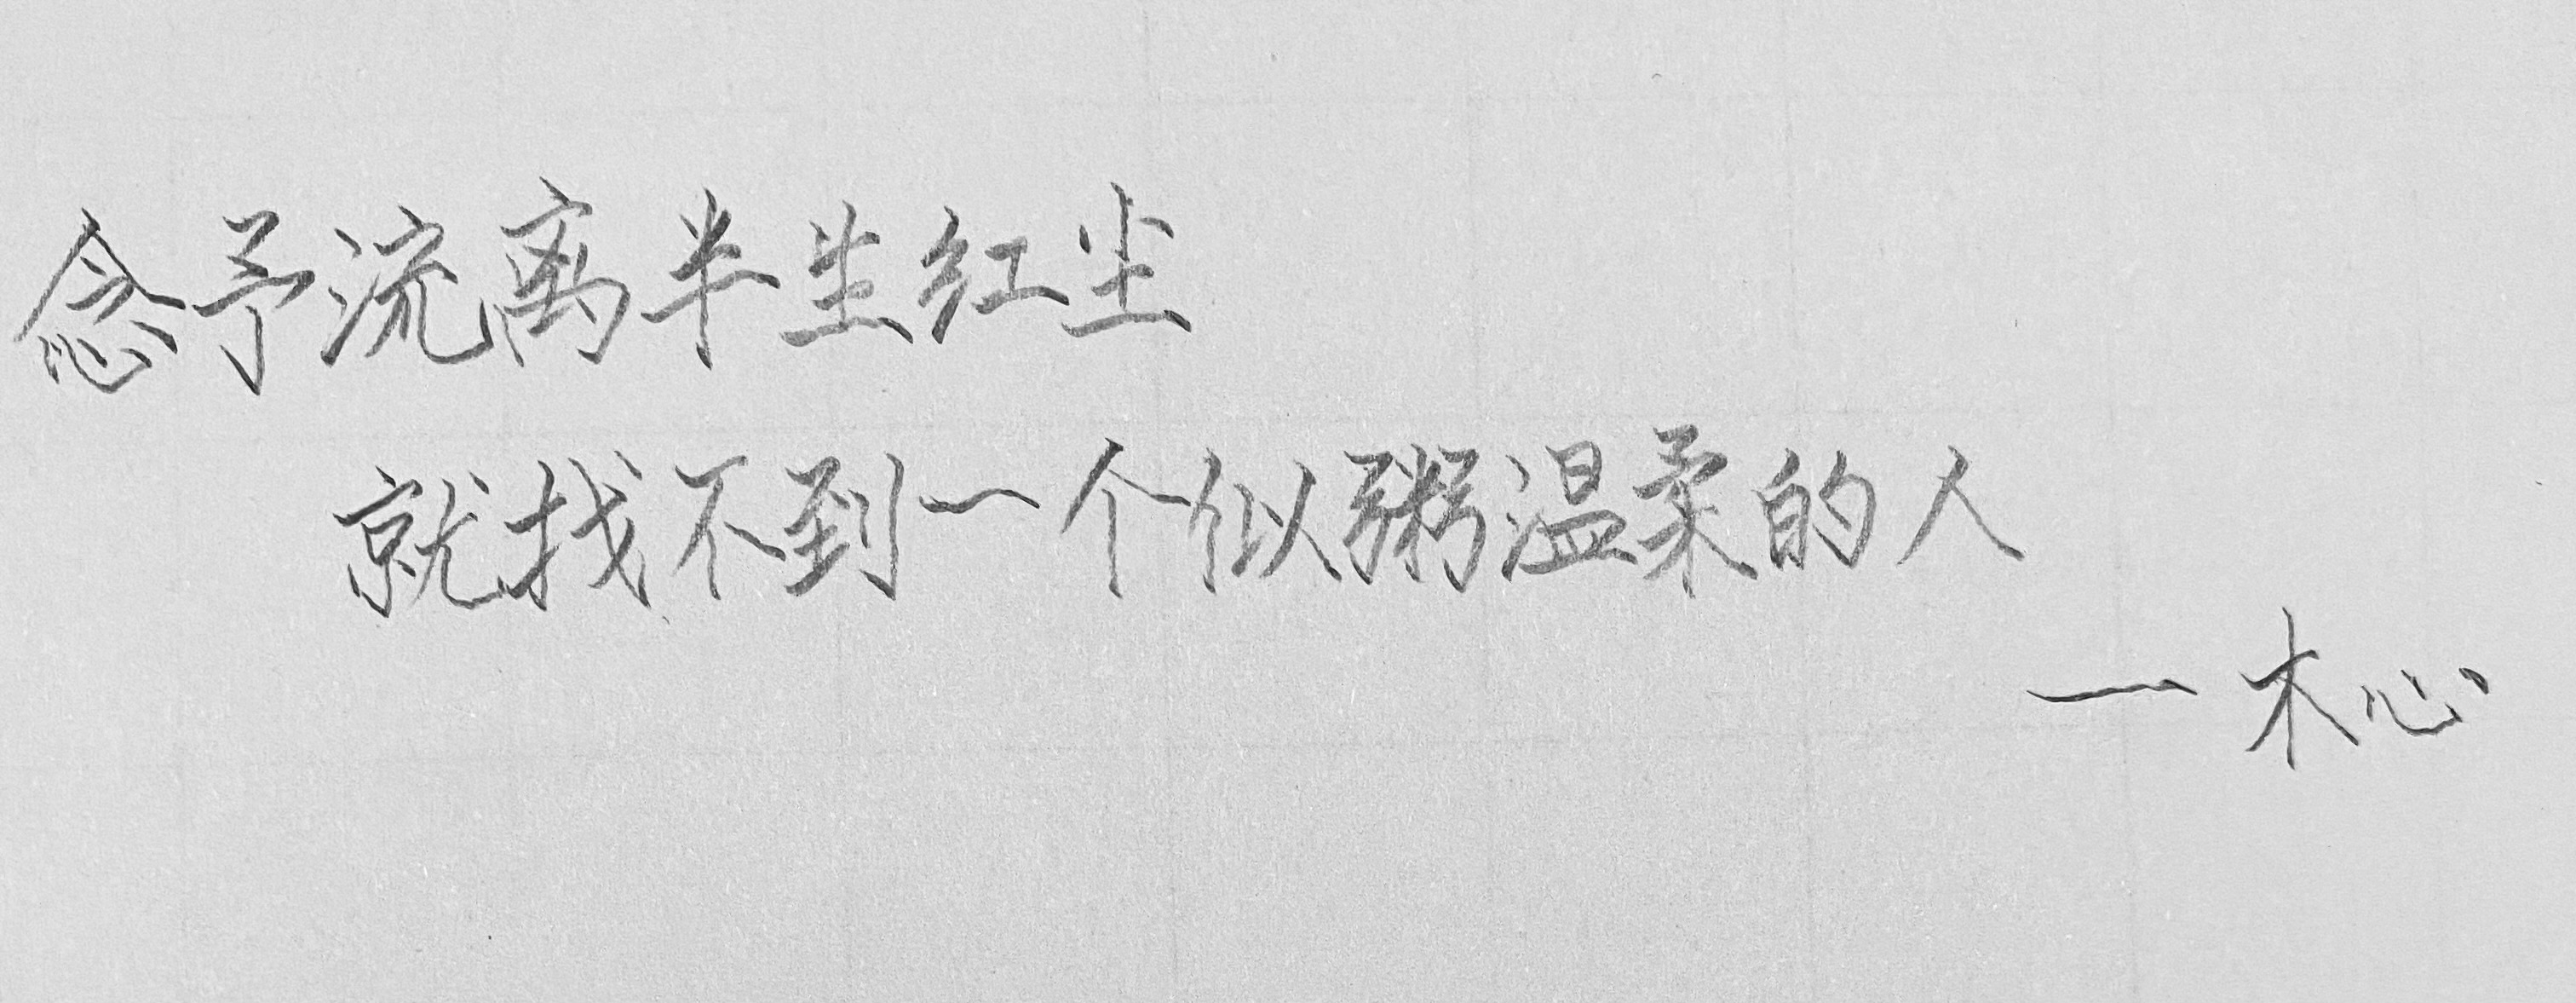 念予流离半生红尘
就找不到一个似粥温柔的人
—木心